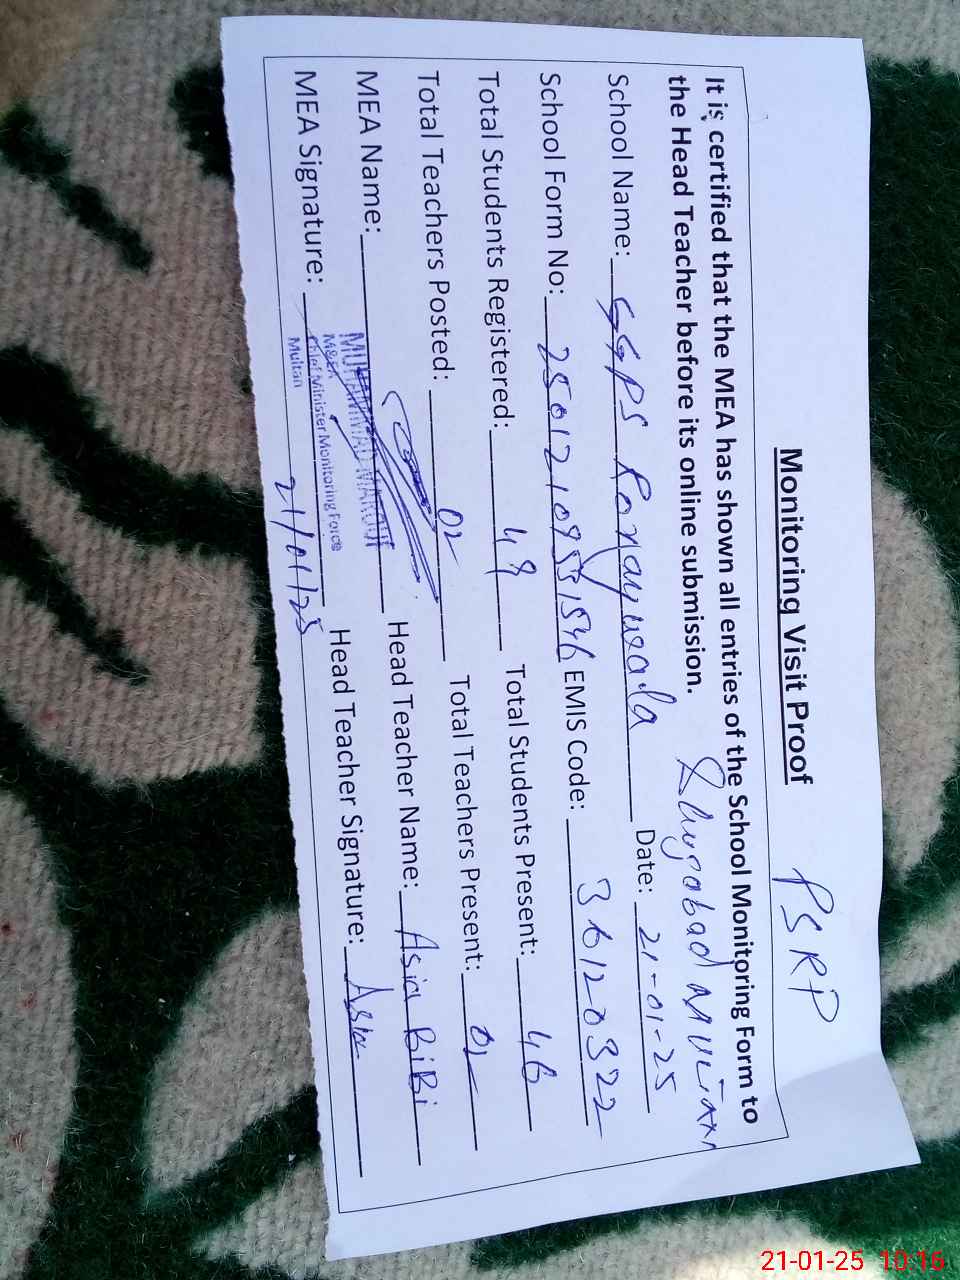 PSRP
Monitoring Visit Proof
It is certified that the MEA has shown all entries of the School Monitoring Form to
the Head Teacher before its online submission.
School Name: GGPS Date: 21-01-25
School Form No: EMIS Code: 36120322
Total Students Registered: 48 Total Students Present: 46
Total Teachers Posted: 02 Total Teachers Present: 02
MEA Name: MUHAMMAD MAROUF Head Teacher Name: Asia BiBi
M&EA
Chief Minister Monitoring Force
Multan
MEA Signature: Head Teacher Signature: Asia
21/01/25
21-01-25 10:16